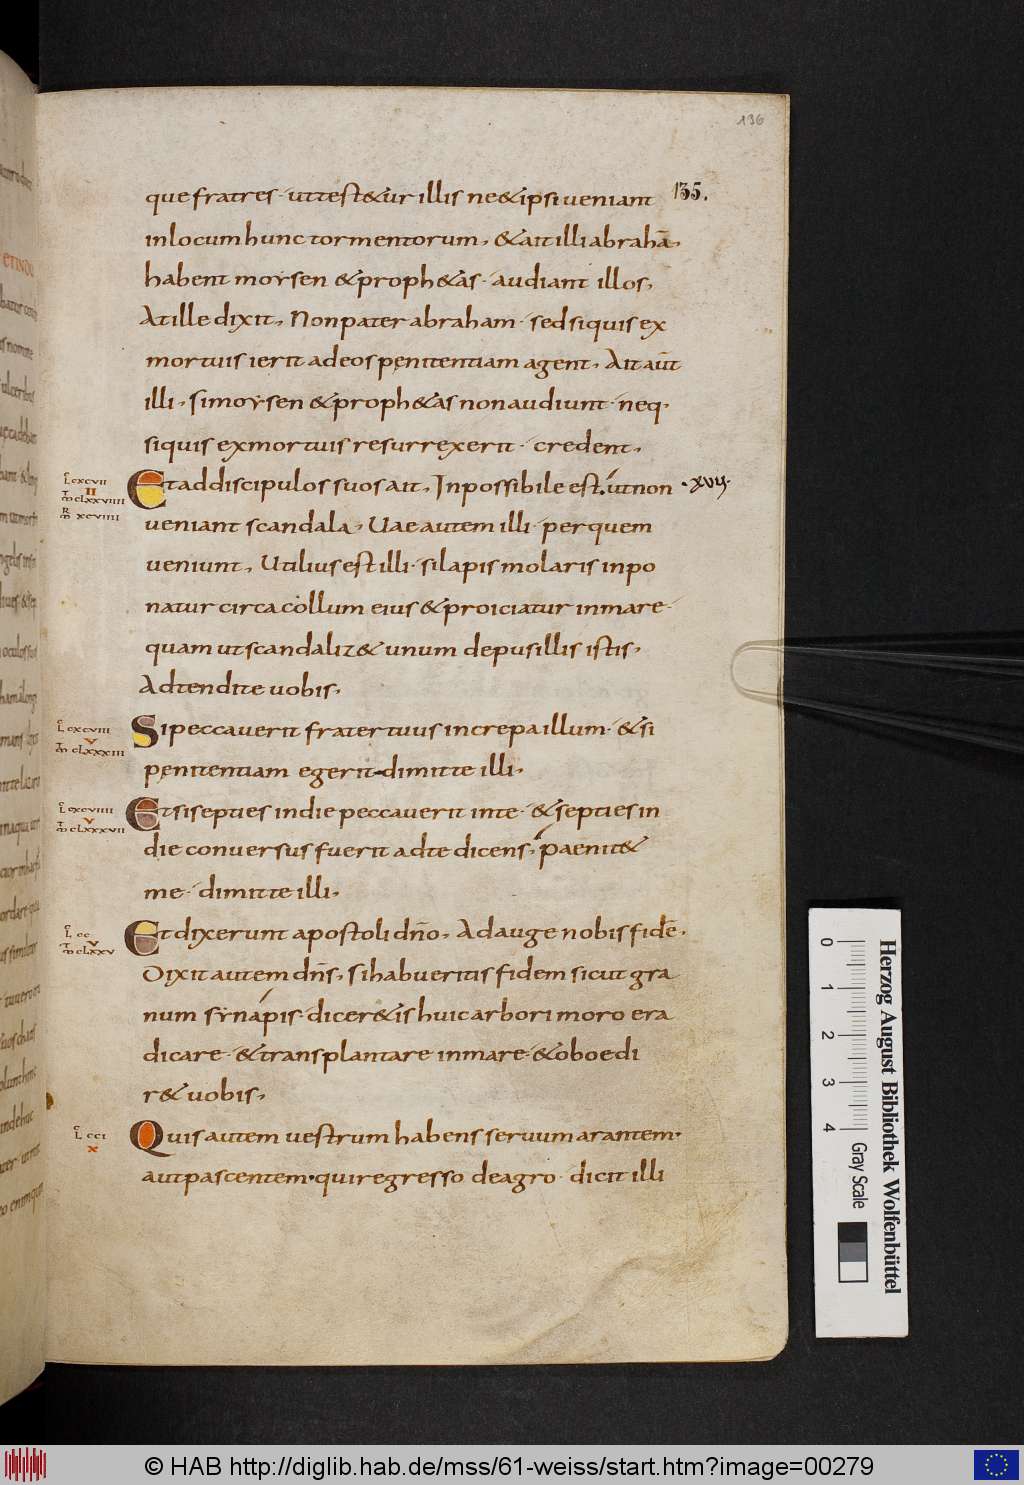 136
135.
que fratres· uttest&ur illis ne&ipsi veniant
inlocum hunc tormentorum, &ait illi abrahā,
habent moysen &proph&as· audiant illos,
Atille dixit, Non pater abraham· sed siquis ex
mortuis ierit adeos pęnitentiam agent, Ait aūt
illi, simoysen &proph&as non audiunt· neq·
siquis exmortuis resurrexerit· credent,
Et addiscipulos suos ait, Inpossibile est, ut non ·xvij·
veniant scandala, Uae autem illi· per quem
veniunt, Utilius est illi· si lapis molaris inpo
natur circa collum eius &proiciatur inmare·
quam ut scandaliz& unum depusillis istis,
Adtendite uobis,
Si peccaverit frater tuus increpa illum· &si
pęnitentiam egerit· dimitte illi,
Et si septies indie peccaverit inte· &septies in
die conversus fuerit adte dicens, paenit&
me· dimitte illi,
Et dixerunt apostoli dño, Adauge nobis fidē,
Dixit autem dñs, si habueritis fidem sicut gra
num synapis· dicer&is huic arbori moro era
dicare· &transplantare inmare· &oboedi
r& uobis,
Quis autem vestrum habens servum arantem·
aut pascentem· qui regresso deagro· dicit illi
L cxcvii
II
clxxviiii
xcviiii
L cxcviii
v
clxxxiii
L cxcviiii
v
clxxxvii
L cc
v
clxxv
L cci
x
Herzog August Bibliothek Wolfenbüttel
Gray Scale
0 1 2 3 4
© HAB http://diglib.hab.de/mss/61-weiss/start.htm?image=00279